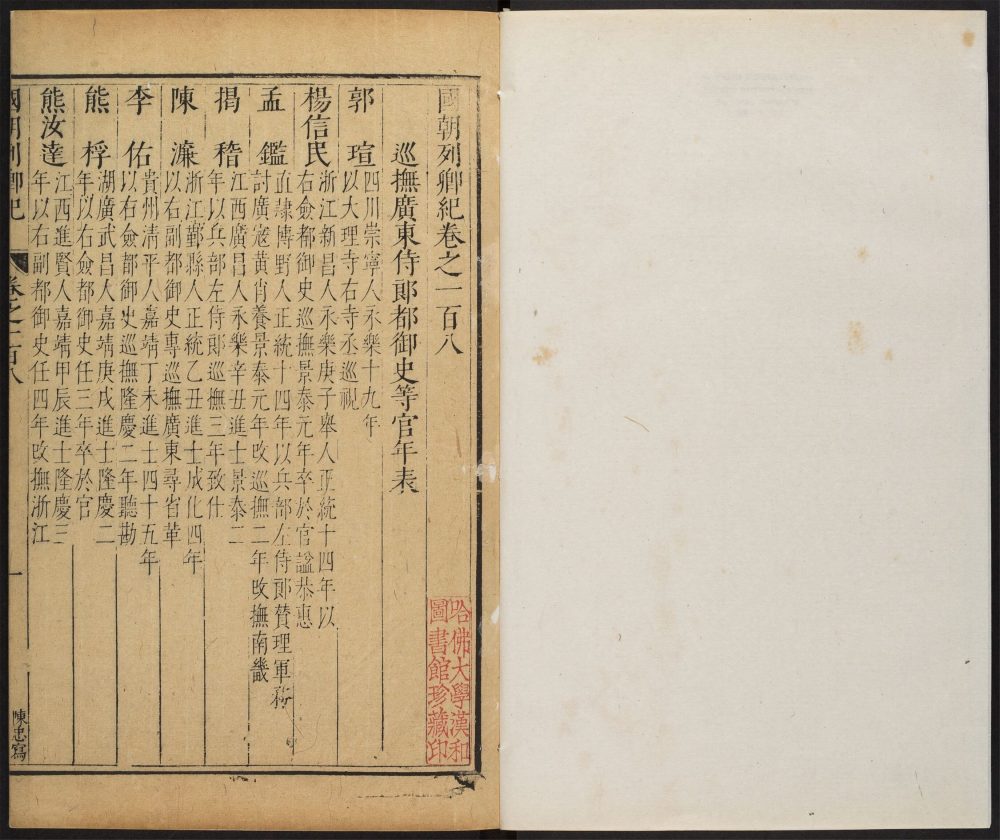 國朝列卿紀卷之一百八
巡撫廣東侍郎都御史等官年表
郭瑄
四川崇寧人永樂十九年
以大理寺右寺丞巡視
楊信民
浙江新昌人永樂庚子舉人正統十四年以
右僉都御史巡撫景泰元年卒於官謚恭惠
孟鑑
直隸博野人正統十四年以兵部左侍郎贊理軍務
討廣寇黃肖養景泰元年改巡撫二年改撫南畿
揭稽
江西廣昌人永樂辛丑進士景泰二
年以兵部左侍郎巡撫三年致仕
陳濂
浙江鄞縣人正統乙丑進士成化四年
以右副都御史專巡撫廣東尋省革
李佑
貴州清平人嘉靖丁未進士四十五年
以右僉都御史巡撫隆慶二年聽勘
熊桴
湖廣武昌人嘉靖庚戌進士隆慶二
年以右僉都御史任三年卒於官
熊汝達
江西進賢人嘉靖甲辰進士隆慶三
年以右副都御史任四年改撫浙江
國朝列卿紀
卷之一百八
一
陳忠寫
哈佛大學漢和
圖書館珍藏印